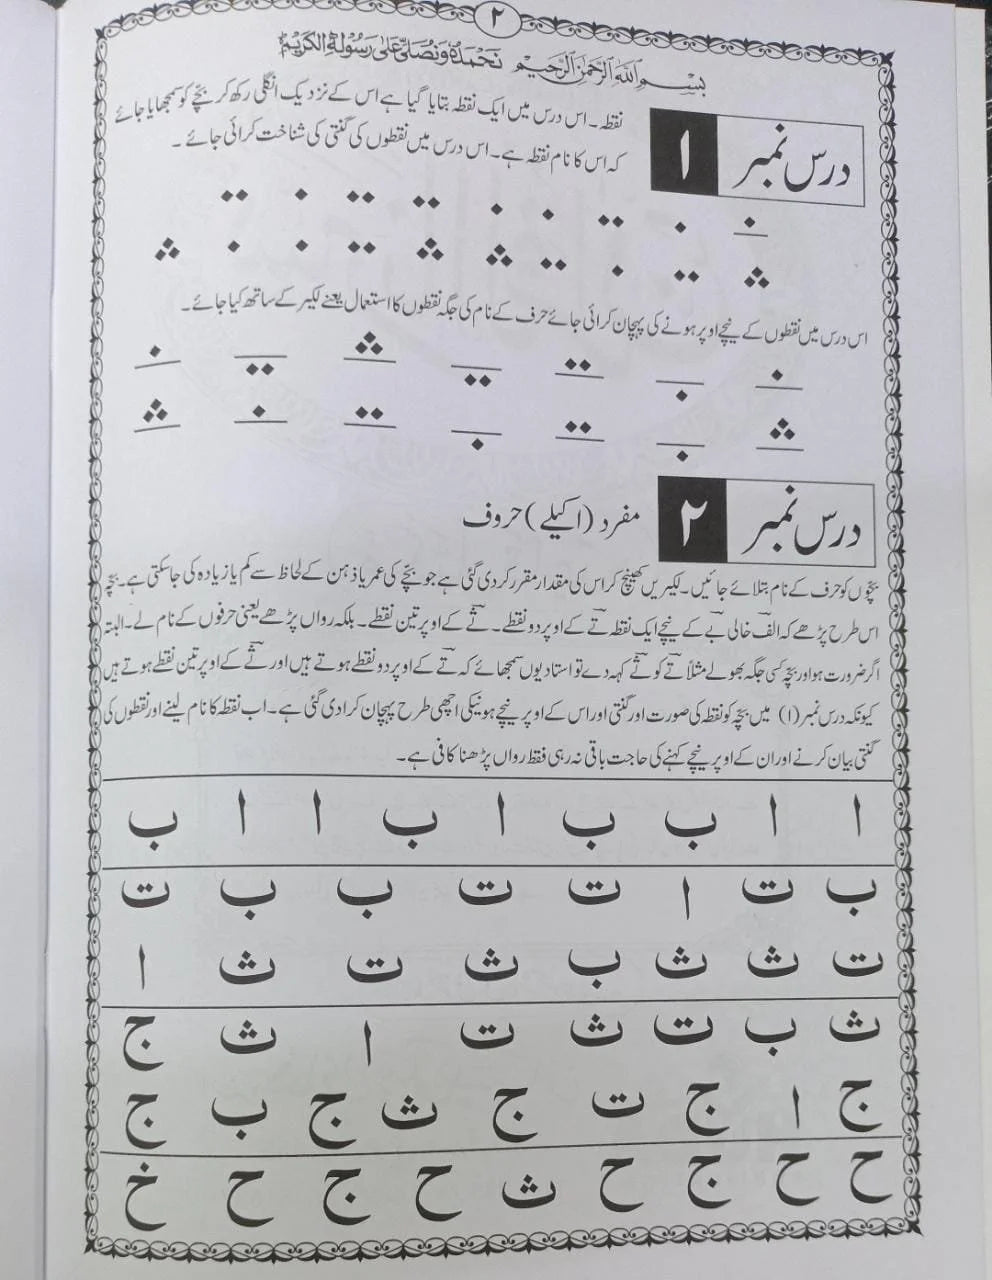 ۲
بِسْمِ اللهِ الرَّحْمٰنِ الرَّحِيْمِ نَحْمَدُهٗ وَنُصَلِّيْ عَلٰى رَسُوْلِهِ الْكَرِيْمِ
درس نمبر ۱
نقطہ۔ اس درس میں ایک نقطہ بتایا گیا ہے اس کے نزدیک انگلی رکھ کر بچے کو سمجھایا جائے
کہ اس کا نام نقطہ ہے۔ اس درس میں نقطوں کی گنتی کی شناخت کرائی جائے ۔
اس درس میں نقطوں کے نیچے اوپر ہونے کی پہچان کرائی جائے حرف کے نام کی جگہ نقطوں کا استعمال یعنے لکیر کے ساتھ کیا جائے۔
درس نمبر ۲ مفرد (اکیلے) حروف
بچّوں کو حرف کے نام بتلائے جائیں۔ لکیریں کھینچ کر اس کی مقدار مقرر کر دی گئی ہے جو بچے کی عمر یا ذہن کے لحاظ سے کم یا زیادہ کی جاسکتی ہے۔ بچّہ
اس طرح پڑھے کہ الف خالی بے کے نیچے ایک نقطہ تے کے اوپر دو نقطے۔ ثے کے اوپر تین نقطے۔ بلکہ رواں پڑھے یعنی حرفوں کے نام لے۔ البتہ
اگر ضرورت ہو اور بچّہ کسی جگہ بھولے مثلاً تے کو ثے کہہ دے تو استاد یوں سمجھائے کہ تے کے اوپر دو نقطے ہوتے ہیں اور ثے کے اوپر تین نقطے ہوتے ہیں
کیونکہ درس نمبر (۱) میں بچّہ کو نقطہ کی صورت اور گنتی اور اس کے اوپر نیچے ہونیکی اچھی طرح پہچان کرا دی گئی ہے۔ اب نقطہ کا نام لینے اور نقطوں کی
گنتی بیان کرنے اور ان کے اوپر نیچے کہنے کی حاجت باقی نہ رہی فقط رواں پڑھنا کافی ہے۔
ا ا ب ب ا ب ا ا ب
ب ت ا ت ت ب ب ت
ت ث ث ب ث ت ث ا
ث ب ت ث ت ا ث ج
ج ا ج ت ج ث ج ب ج
ح ح ج ح ث ح ج ح خ